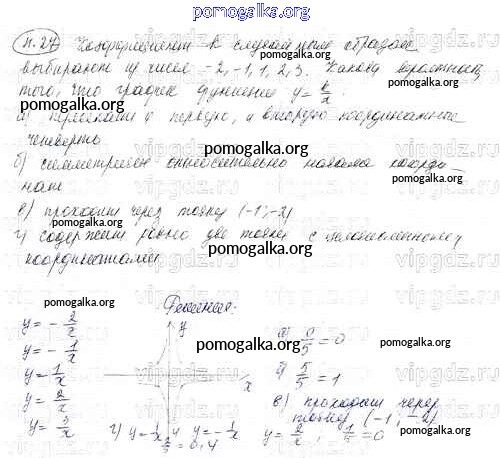 pomogalka.org
п.27 Коэффициент k случайным образом
выбирают из чисел -2, -1, 1, 2, 3. Какова вероятность
того, что график функции y = k/x
pomogalka.org
а) пересекает и первую, и вторую координатные
четверть
б) симметричен относительно начала коорди-
нат
pomogalka.org
в) проходит через точку (-1; -2)
pomogalka.org
г) содержит ровно две точки с целочисленными
координатами
pomogalka.org
pomogalka.org
Решение:
y = -2/x
y = -1/x
y = 1/x
y = 2/x
y = 3/x
y
x
а) 0/5 = 0
б) 5/5 = 1
в) проходит через
точку (-1, -2)
y = 2/x; 1/5 = 0
г) y = 1/x и y = -1/x
2/5 = 0,4
pomogalka.org
pomogalka.org
pomogalka.org
vipgdz.ru